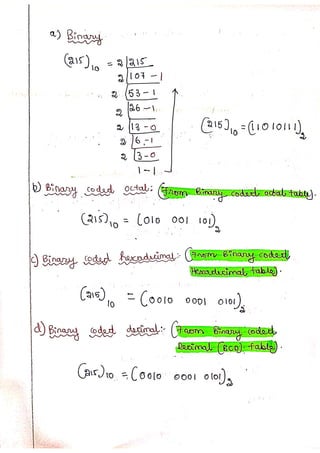 a) Binary
(215)10 = 2 | 215
2 | 107 - 1
2 | 53 - 1
2 | 26 - 1
2 | 13 - 0
2 | 6 - 1
2 | 3 - 0
1 - 1
(215)10 = (11010111)2
b) Binary coded octal: (From Binary coded octal table).
(215)10 = (010 001 101)2
c) Binary coded hexadecimal:- (From Binary coded
Hexadecimal table).
(215)10 = (0010 0001 0101)2
d) Binary coded decimal:- (From Binary coded
Decimal (BCD) table).
(215)10 = (0010 0001 0101)2